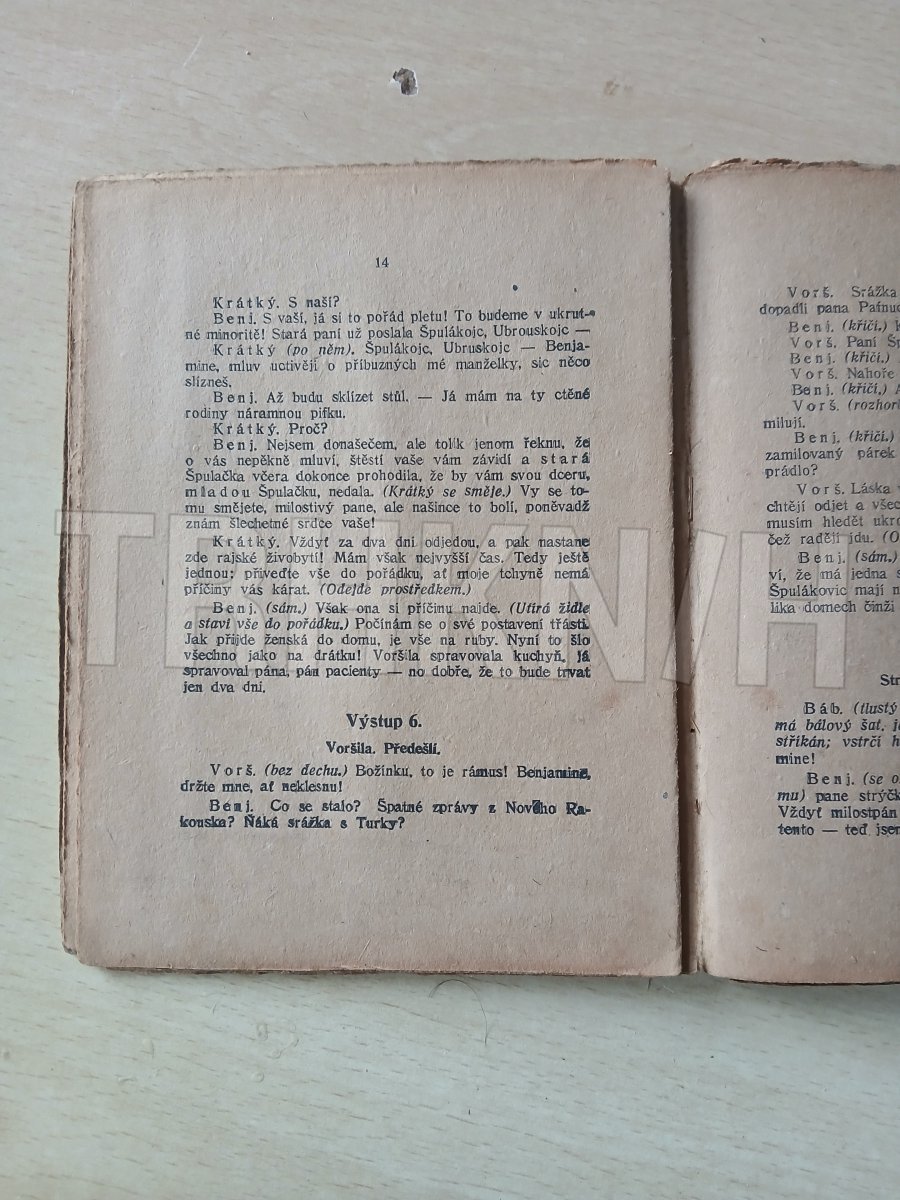 14
Krátký. S naší?
Benj. S vaší, já si to pořád pletu! To budeme v ukrut-
né minoritě! Stará paní už poslala Špulákojc, Ubrouskojc —
Krátký (po něm). Špulákojc, Ubruskojc — Benja-
mine, mluv uctivěji o příbuzných mé manželky, sic něco
slízneš.
Benj. Až budu sklízet stůl. — Já mám na ty ctěné
rodiny náramnou pifku.
Krátký. Proč?
Benj. Nejsem donašečem, ale tolik jenom řeknu, že
o vás nepěkně mluví, štěstí vaše vám závidí a stará
Špulačka včera dokonce prohodila, že by vám svou dceru,
mladou Špulačku, nedala. (Krátký se směje.) Vy se to-
mu smějete, milostivý pane, ale našince to bolí, poněvadž
znám šlechetné srdce vaše!
Krátký. Vždyť za dva dni odjedou, a pak nastane
zde rajské živobytí! Mám však nejvyšší čas. Tedy ještě
jednou: přiveďte vše do pořádku, ať moje tchyně nemá
příčiny vás kárat. (Odejde prostředkem.)
Benj. (sám.) Však ona si příčinu najde. (Utírá židle
a staví vše do pořádku.) Počínám se o své postavení třásti.
Jak přijde ženská do domu, je vše na ruby. Nyní to šlo
všechno jako na drátku! Voršila spravovala kuchyň, já
spravoval pána, pán pacienty — no dobře, že to bude trvat
jen dva dni.
Výstup 6.
Voršila. Předešlí.
Vorš. (bez dechu.) Božínku, to je rámus! Benjamine,
držte mne, ať neklesnu!
Benj. Co se stalo? Špatné zprávy z Nového Ra-
kouska? Ňáká srážka s Turky?
Vorš. Srážka
dopadli pana Pafnuc
Benj. (křičí.)
Vorš. Paní Šp
Benj. (křičí.)
Vorš. Nahoře
Benj. (křičí,)
Vorš. (rozhorl
milují.
Benj. (křičí.)
zamilovaný párek
prádlo?
Vorš. Láska
chtějí odjet a všec
musím hledět ukro
čež raději jdu. (O
Benj. (sám.)
ví, že má jedna s
Špulákovic mají n
lika domech činži
Str
Báb. (tlustý
má bálový šat, je
stříkán; vstrčí h
mine!
Benj. (se o
mu) pane strýčk
Vždyť milostpán
tento — teď jsem